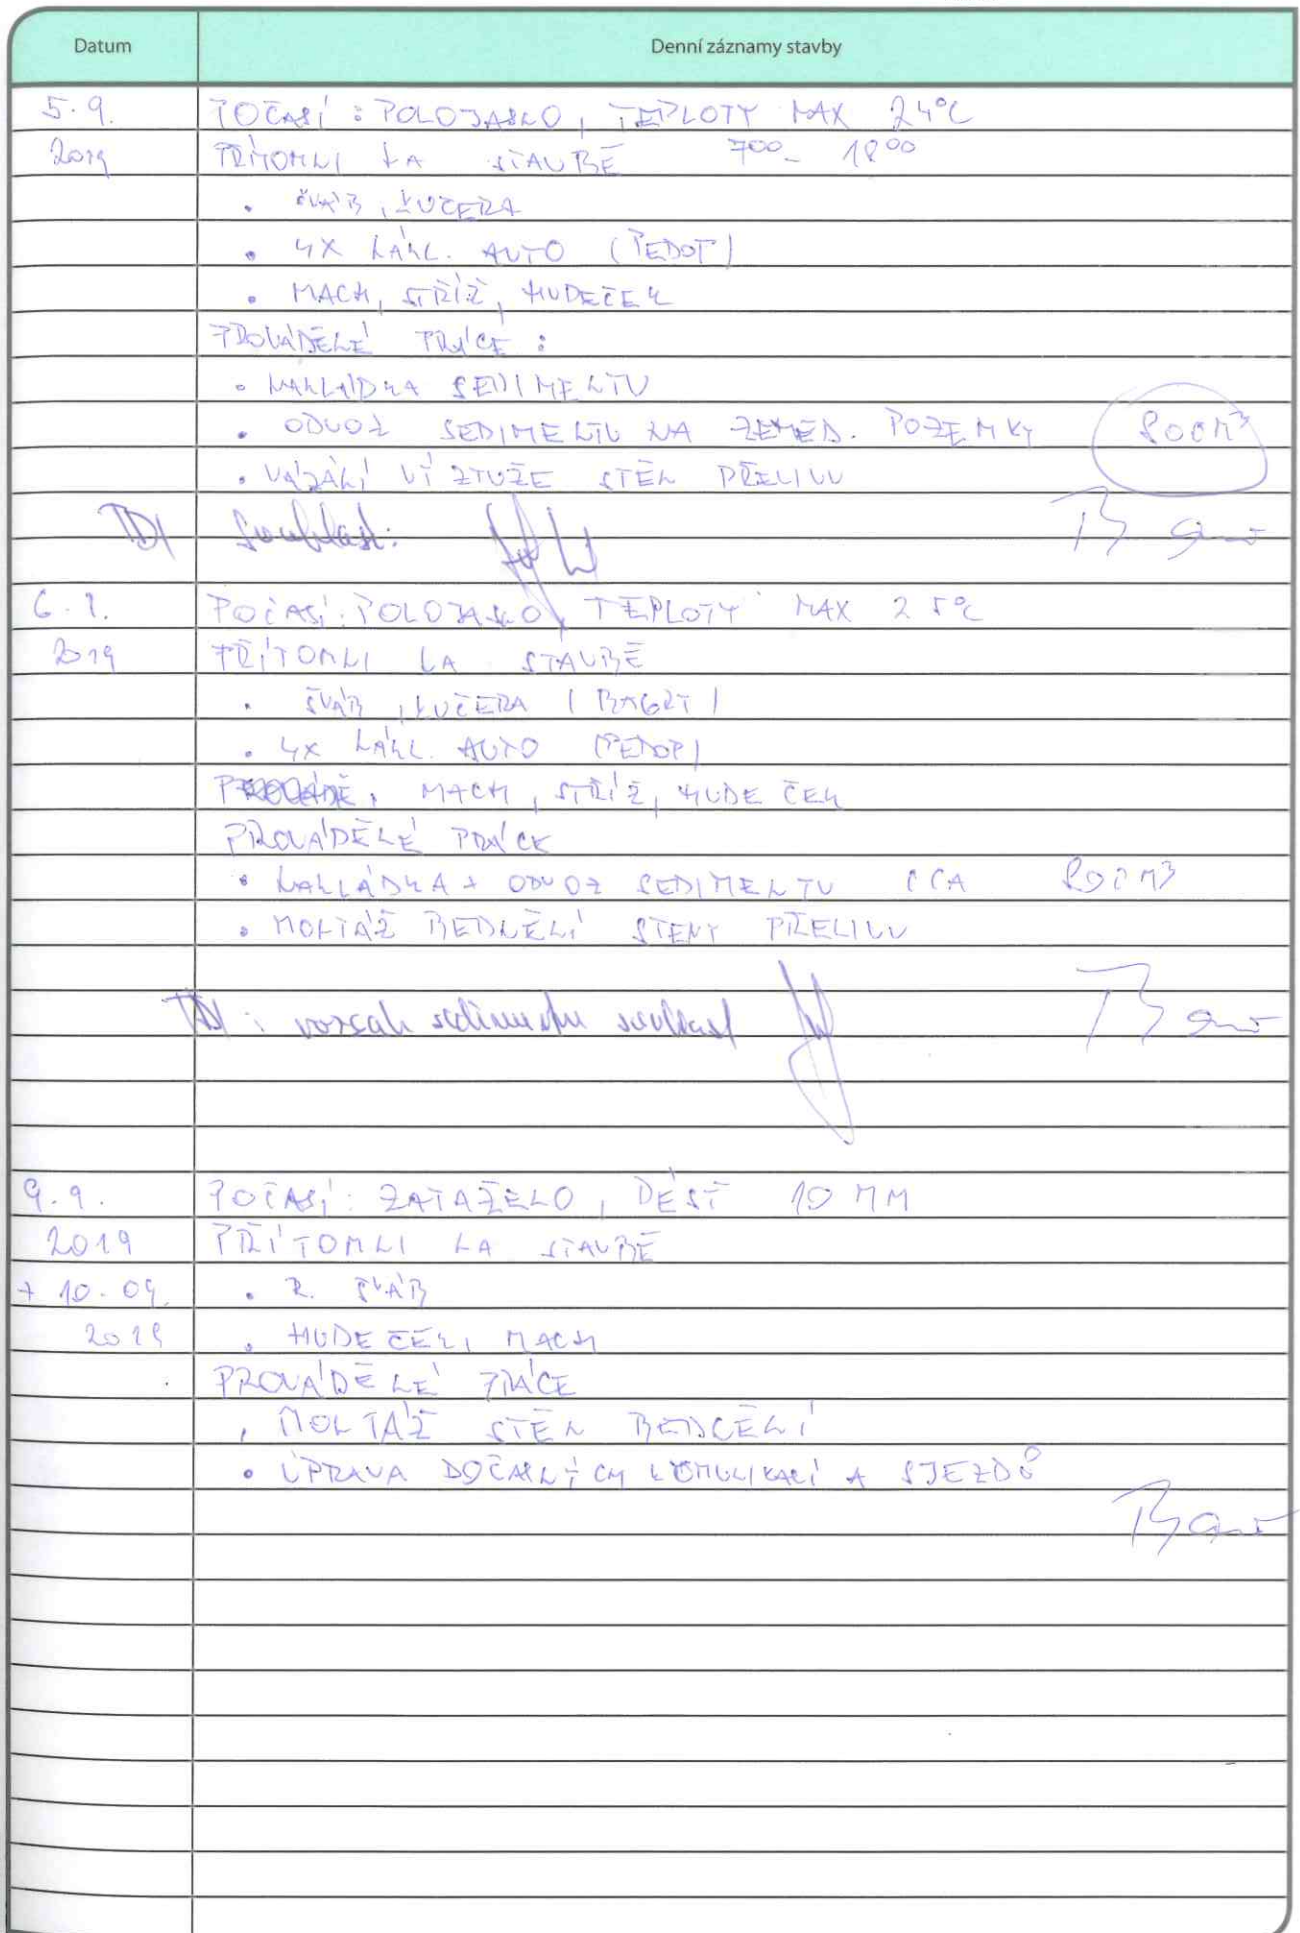 Datum Denní záznamy stavby
5.9. POČASÍ: POLOJASNO, TEPLOTY MAX 24°C
2019 PŘÍTOMNI NA STAVBĚ 7 00 - 18 00
• ŠVÁB, KUČERA
• 4X NÁKL. AUTO (PEDOP)
• MACH, STŘÍŽ, HUDEČEK
PROVÁDĚNÉ PRÁCE:
• NAKLÁDKA SEDIMENTU
• ODVOZ SEDIMENTU NA ZEMĚD. POZEMKY 800M³
• VÁZÁNÍ VÝZTUŽE STĚN PŘELIVU
TDI souhlasí:
6.9. POČASÍ: POLOJASNO, TEPLOTY MAX 25°C
2019 PŘÍTOMNI NA STAVBĚ
• ŠVÁB, KUČERA (BAGRY)
• 4X NÁKL. AUTO (PEDOP)
MACH, STŘÍŽ, HUDEČEK
PROVÁDĚNÉ PRÁCE
• NAKLÁDKA + ODVOZ SEDIMENTU CCA 800M3
• MONTÁŽ BEDNĚNÍ STĚNY PŘELIVU
TDI: rozsah sedimentu souhlasí
9.9. POČASÍ: ZATAŽENO, DÉŠŤ 10 MM
2019 PŘÍTOMNI NA STAVBĚ
+ 10.09. • R. ŠVÁB
2019 • HUDEČEK, MACH
PROVÁDĚNÉ PRÁCE
• MONTÁŽ STĚN BEDNĚNÍ
• ÚPRAVA DOČASNÝCH KOMUNIKACÍ A SJEZDŮ